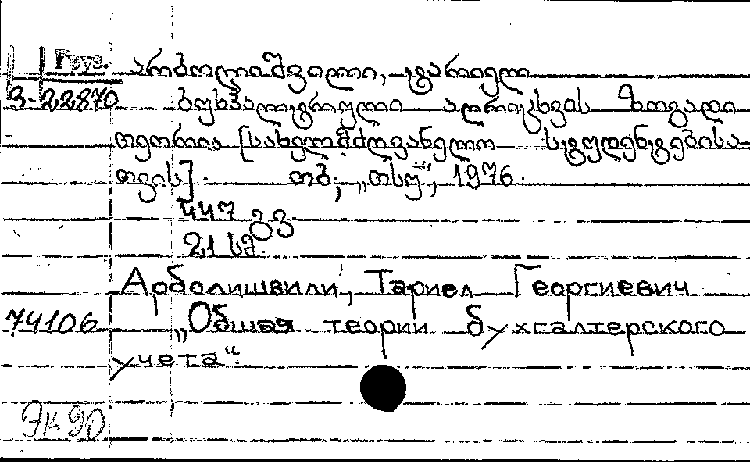 Груз.
არბოლიშვილი, ტარიელ
3-22870 ბუხჰალტრული აღრიცხვის ზოგადი
თეორია [სახელმძღვანელო სტუდენტებისა
თვის]. თბ., „თსუ“, 1976.
447 გვ.
21 სმ.
Арболишвили, Тариел Георгиевич
74106 „Общая теории бухгалтерского
учета“.
Эк 90